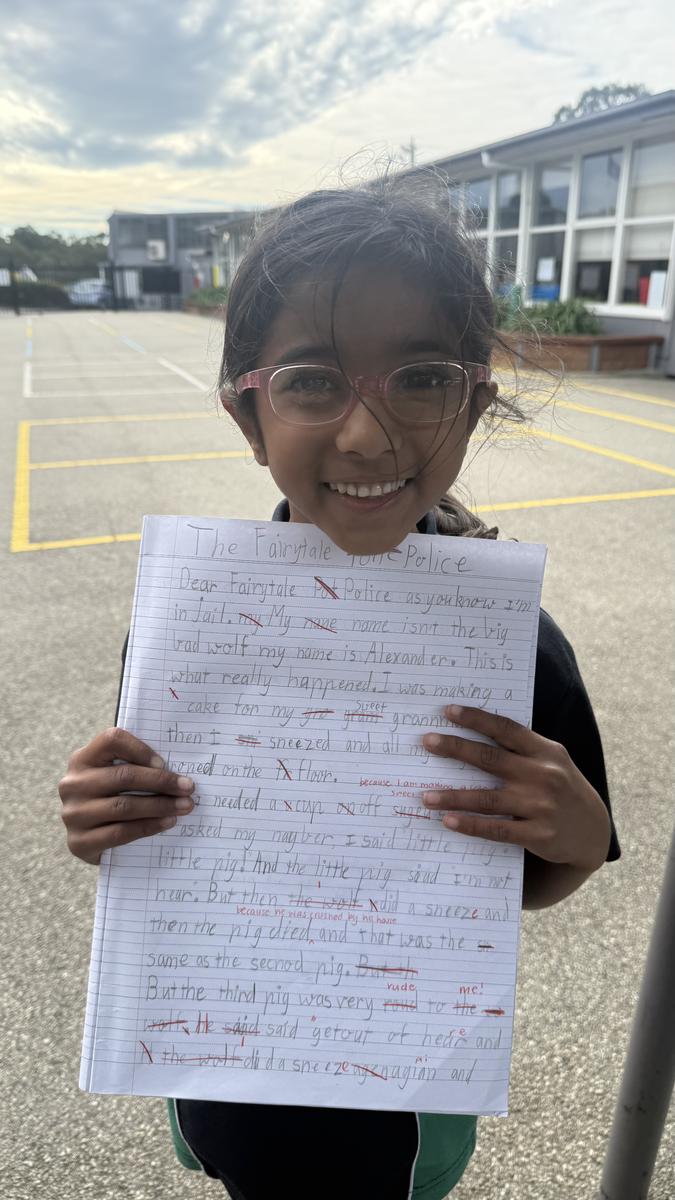 The Fairytale Police
Dear Fairytale Police as you know I'm
in Jail. my My name name isn't the big
bad wolf my name is Alexander. This is
what really happened. I was making a
cake for my gro grant sweet grann
then I sneezed and all my
on the floor.
because I am making a
needed a cup on off
asked my nayber, I said little pig
little pig! And the little pig said I'm not
hear. But then the wolf I did a sneeze and
because he was crushed by his house
then the pig died and that was the
same as the secnod pig. But
rude me!
But the third pig was very to the
wolf. He said said "getout of here and
the wolf I did a sneeze agian and